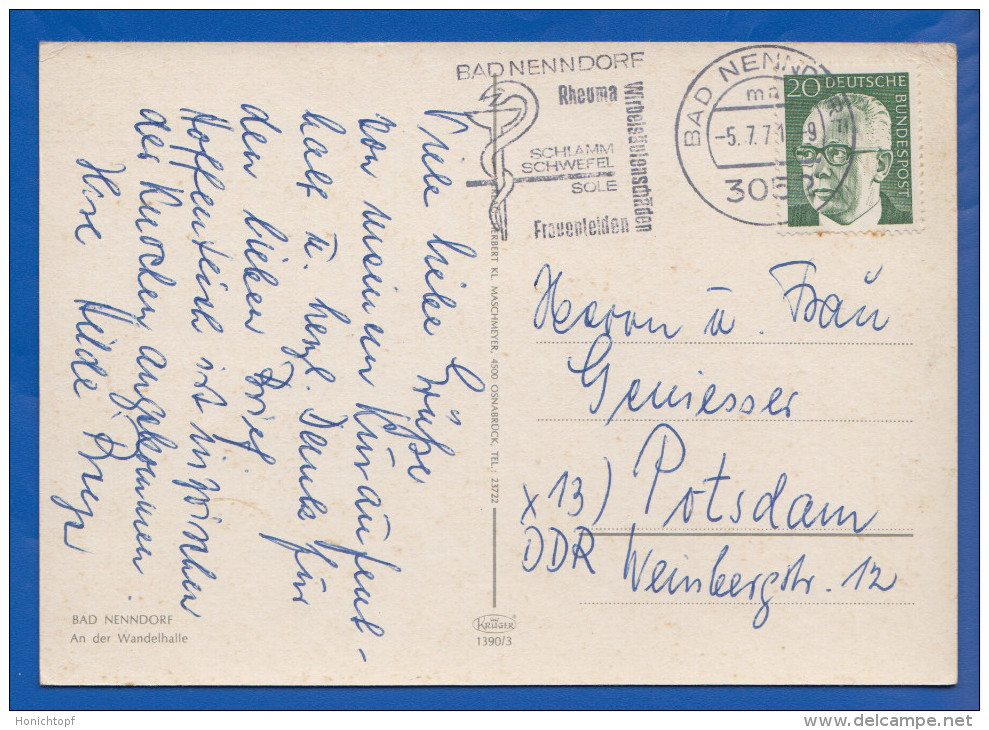 BAD NENNDORF
Rheuma
Wirbelsäulenschäden
SCHLAMM
SCHWEFEL
SOLE
Frauenleiden
BAD NENNDORF
-5.7.7
20 DEUTSCHE
BUNDESPOST
Viele liebe Grüße
von meinem Kuraufent-
halt u. herzl. Dank für
den lieben Brief
Hoffentlich ist inzwischen
der Kuchen angekommen.
Hilde
HERBERT KL. MASCHMEYER, 4500 OSNABRÜCK, TEL.: 23722
Herrn u. Frau
Geniesser
x 13) Potsdam
DDR
Weinbergstr. 12
BAD NENNDORF
An der Wandelhalle
KRÜGER
1390/3
Honichtopf
delcampe.net